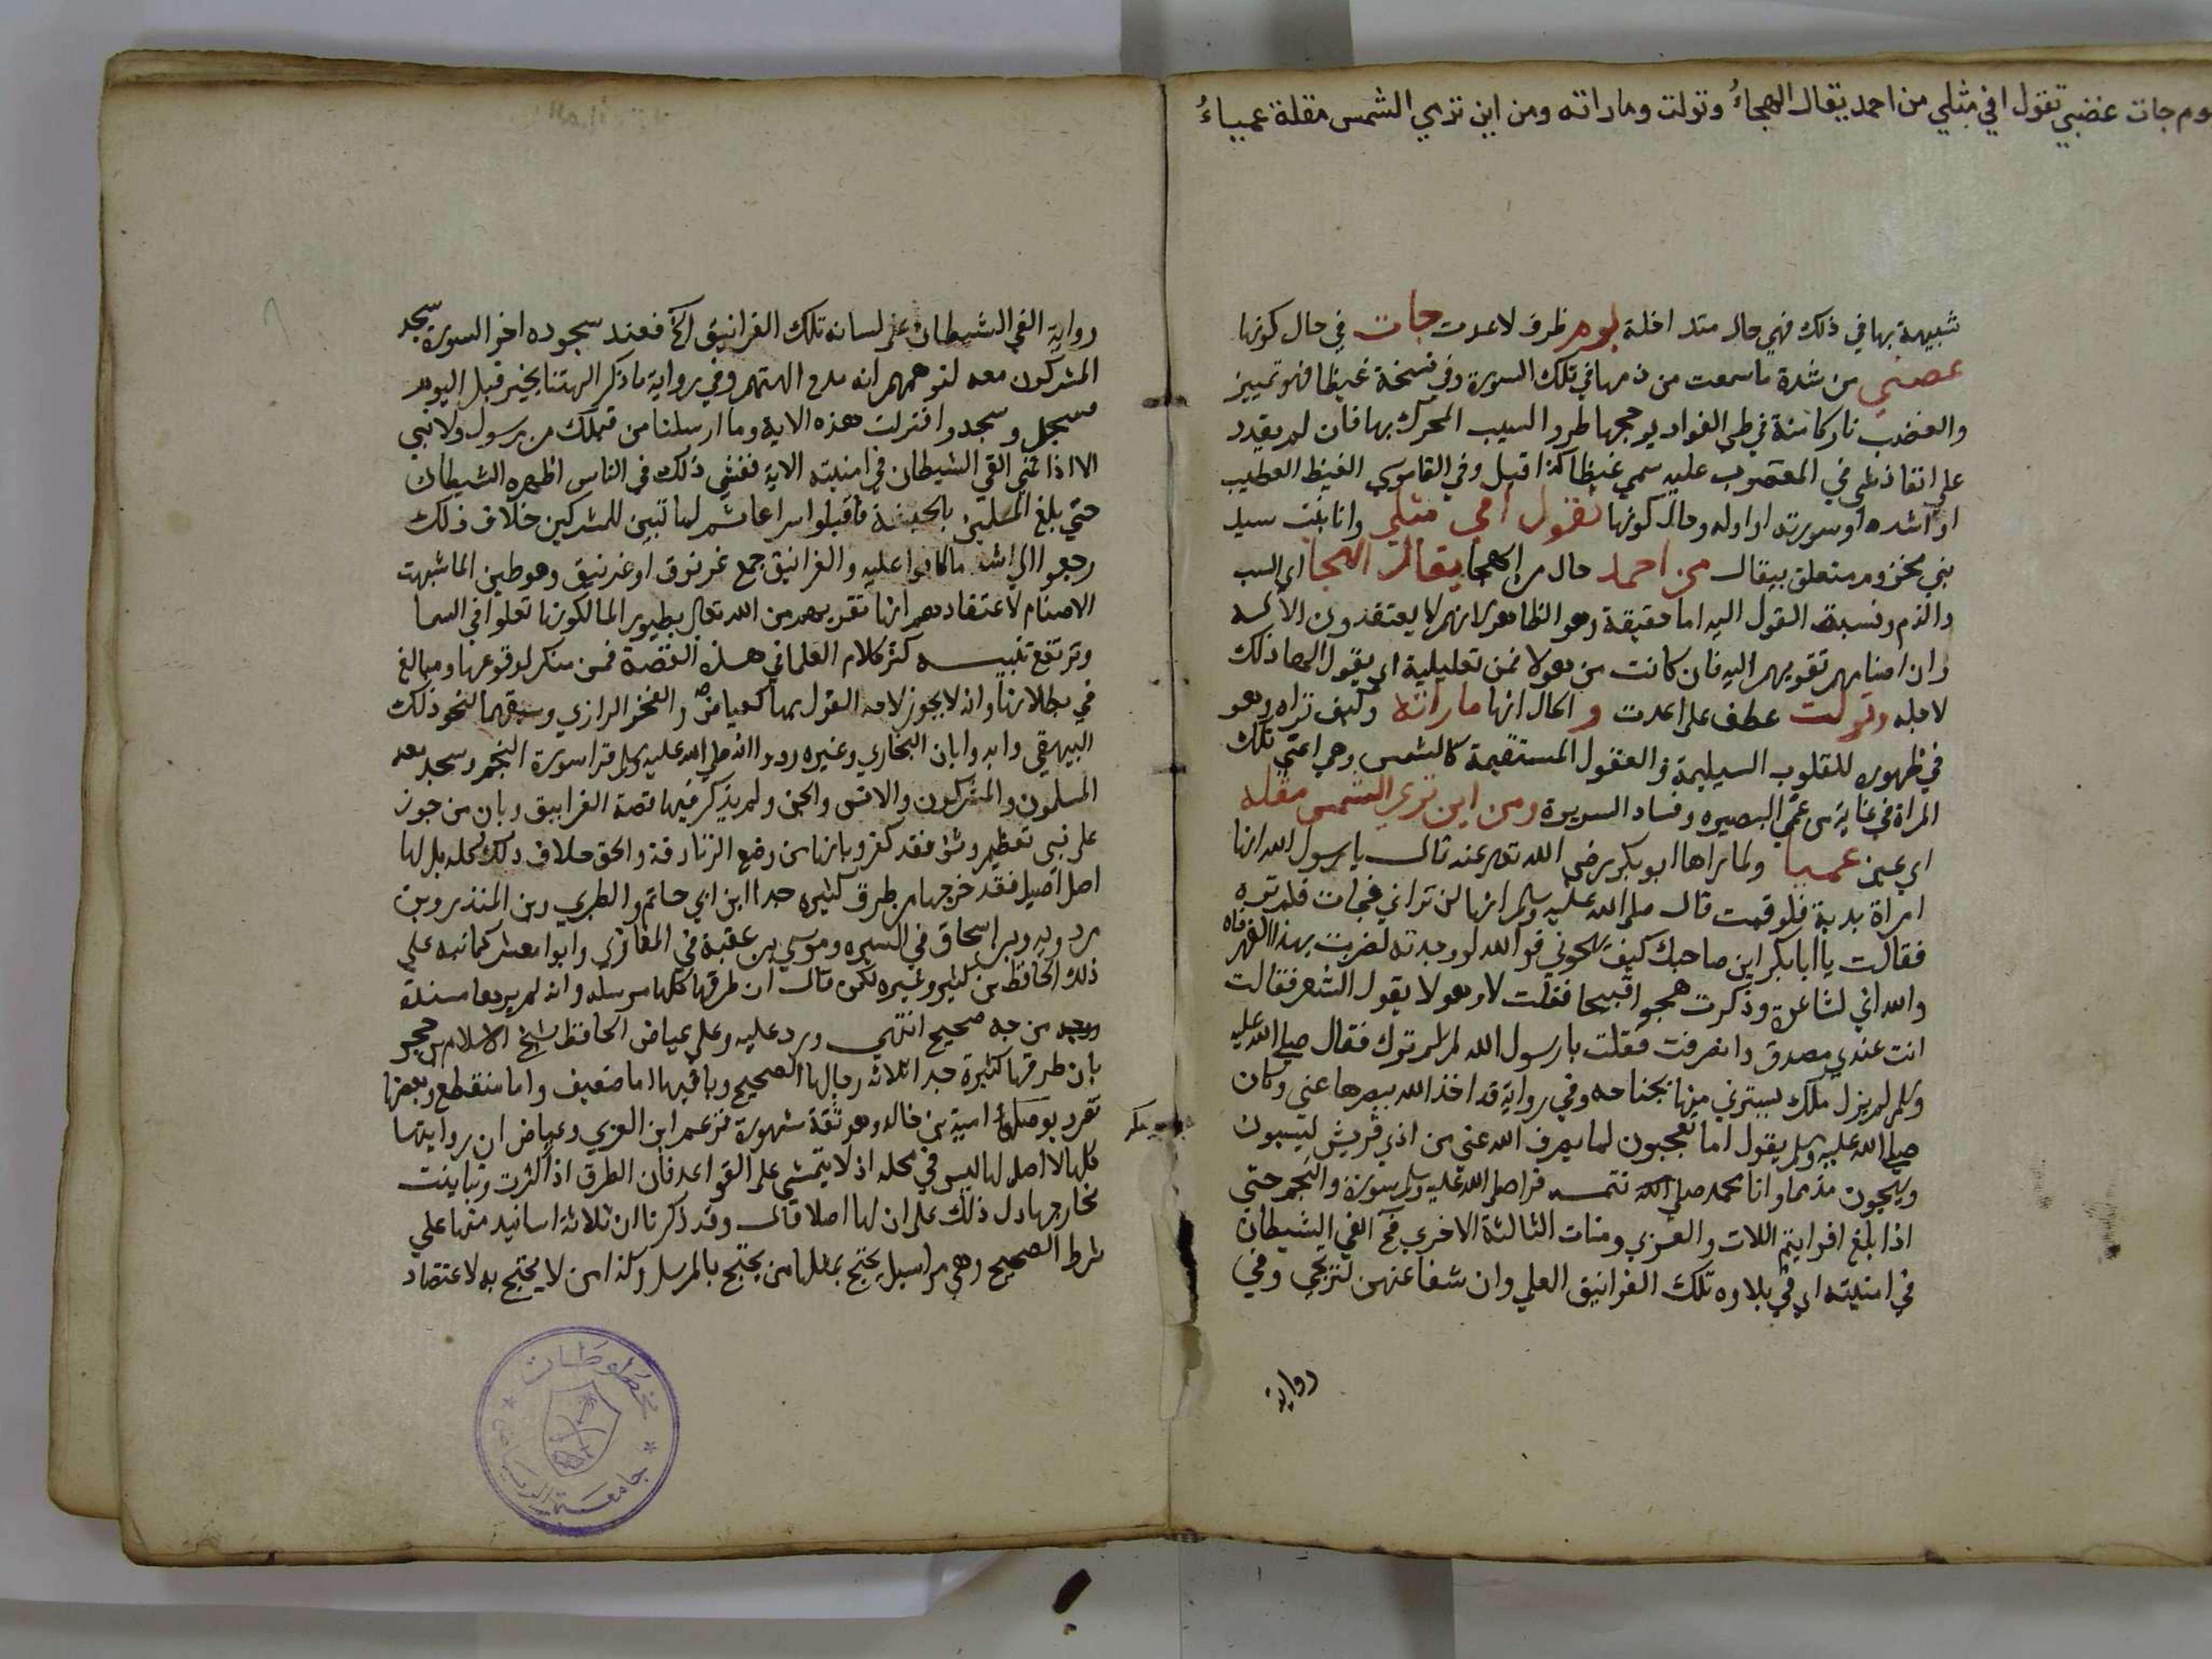 يوم جات غضبي تقول افي مثلي من احمد يقال الهجاءُ وتولت وما راته ومن اين تري الشمس مقلة عمياءُ
شبيهة بها في ذلك فهي حال متداخلة يوم ظرف لاعدت جات في حال كونها
غضبي من شدة ما سمعت من ذمها في تلك السورة وفي نسخة غيظا فهو تمييز
والغضب نار كامنة في طي الفواد يوججها طرو السبب المحرك بها فان لم يقدر
علي انفاذ غلي في المغضوب عليه سمي غيظا كذا قيل وفي القاموس الغيظ الغضب
او اشده او سورته او اوله وحال كونها تقول افي مثلي وانا بنت سيد
بني مخزوم متعلق بيقال من احمد حال من الهجا يقال الهجا اي السب
والذم ونسبة القول اليه اما حقيقة وهو الظاهر لانهم لا يعتقدون الا له
وان اصنامهم تقربهم اليه فان كانت من هولا فمن تعليلية اي يقول الها ذلك
لاجله وتولت عطف علي اعدت و الحال انها ما راته وكيف تراه وهو
في ظهوره للقلوب السليمة والعقول المستقيمة كالشمس وهي اعني تلك
المراة في غاية من عمي البصيره وفساد السريرة ومن اين تري الشمس مقله
اي عين عميا ولما راها ابو بكر رضي الله تعالي عنه قال يا رسول الله انها
امراة بذية فلو قمت قال صلي الله عليه وسلم انها لن تراني فجات فلم تره
فقالت يا ابا بكر اين صاحبك كيف يهجوني فو الله لو وجدته لضربت بهذا الفهر فاه
والله اني لشاعرة وذكرت هجوا قبيحا فقلت لا وهو لا يقول الشعر فقالت
انت عندي مصدق وانصرفت فقلت يا رسول الله لم لم ترك فقال صلي الله عليه
وسلم لم يزل ملك يسترني منها بجناحه وفي رواية قد اخذ الله ببصرها عني وكان
صلي الله عليه وسلم يقول اما تعجبون لما يصرف الله عني من اذي قريش يسبون
ويهجون مذمما وانا محمد صلي الله تتمه قرا صلي الله عليه وسلم سورة والنجم حتي
اذا بلغ افرايتم اللات والعزي ومنات الثالثة الاخري فح القي الشيطان
في امنيته اي في تلاوه تلك الغرانيق العلي وان شفاعتهن لترتجي وفي
رواية
رواية القي الشيطان علي لسانه تلك الغرانيق الخ فعند سجوده اخر السورة سجد
المشركون معه لتوهمهم انه مدح الهتهم وفي رواية ما ذكر الهتنا بخير قبل اليوم
فسجد وسجدوا فنزلت هذه الاية وما ارسلنا من قبلك من رسول ولا نبي
الا اذا تمني القي الشيطان في امنيته الاية ففشي ذلك في الناس اظهره الشيطان
حتي بلغ المسلمين بالحبشة فاقبلوا سراعا ثم لما تبين للمشركين خلاف ذلك
رجعوا الي اشد ما كانوا عليه والغرانيق جمع غرنوق او غرنيق وهو طير الما شبهت
الاصنام لاعتقادهم انها تقربهم من الله تعالي بطيور الما لكونها تعلوا في السما
وترتفع تنبيه كثر كلام العلما في هذه القصة فمن منكر لوقوعها ومبالغ
في بطلانها وانه لا يجوز لاحد القول بها كعياض والفخر الرازي وسبقهما لنحو ذلك
البيهقي وايد وابان البخاري وغيره رووا انه صلي الله عليه وسلم قرا سورة النجم وسجد معه
المسلمون والمشركون والانس والجن ولم يذكر فيها قصة الغرانيق وبان من جوز
علي نبي تعظيم وثن فقد كفر وبانها من وضع الزنادقة والحق خلاف ذلك كله بل لها
اصل اصيل فقد خرجها من طرق كثيره جدا ابن ابي حاتم والطبري وبن المنذر وبن
مردويه وبن اسحاق في السيره وموسي بن عقبة في المغازي وابوا معشر كما نبه علي
ذلك الحافظ بن كثير وغيره لكن قال ان طرقها كلها مرسله وانه لم يرها مسندة
من وجه صحيح انتهي ورد عليه وعلي عياض الحافظ شيخ الاسلام بن حجر
بان طرقها كثيرة جدا ثلاثه رجالها الصحيح وباقيها اما ضعيف واما منقطع وبعضها
تفرد بوصله امية بن خالد وهو ثقة مشهورة فزعم ابن العربي وعياض ان رواياتها
كلها لا اصل لها ليس في محله اذ لا يتمشي علي القواعد فان الطرق اذا كثرت وتباينت
مخارجها دل ذلك علي ان لها اصلا قال وقد ذكرنا ان ثلاثة اسانيد منها علي
شرط الصحيح وهي مراسيل يحتج بمثلها من يحتج بالمرسل وكذا من لا يحتج به لاعتضاد
مخطوطات
جامعة الرياض